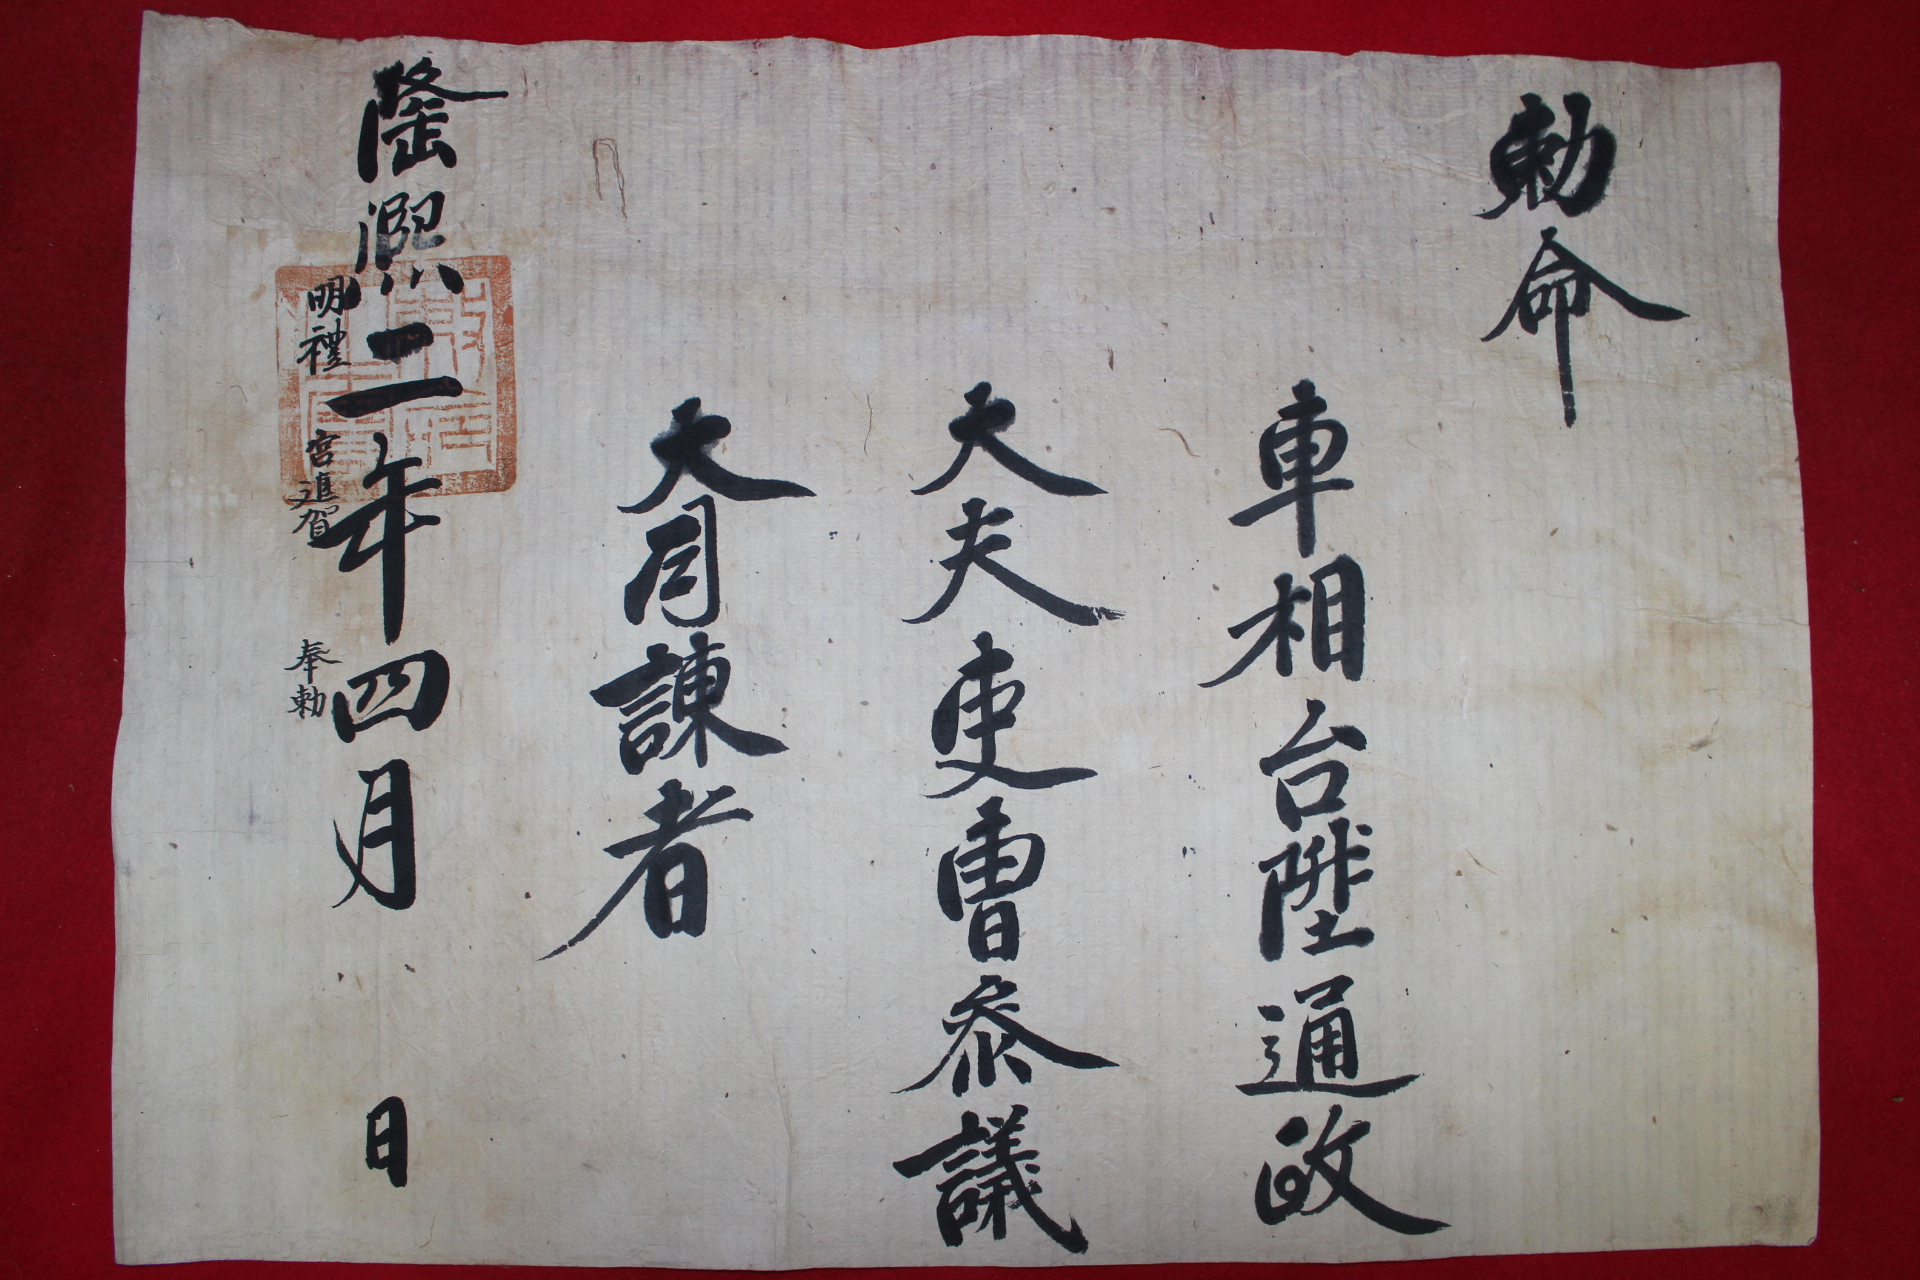 勅命
車相台陞通政
大夫吏曹參議
大司諫者
隆熙二年四月 日
明禮宮進賀
奉勅